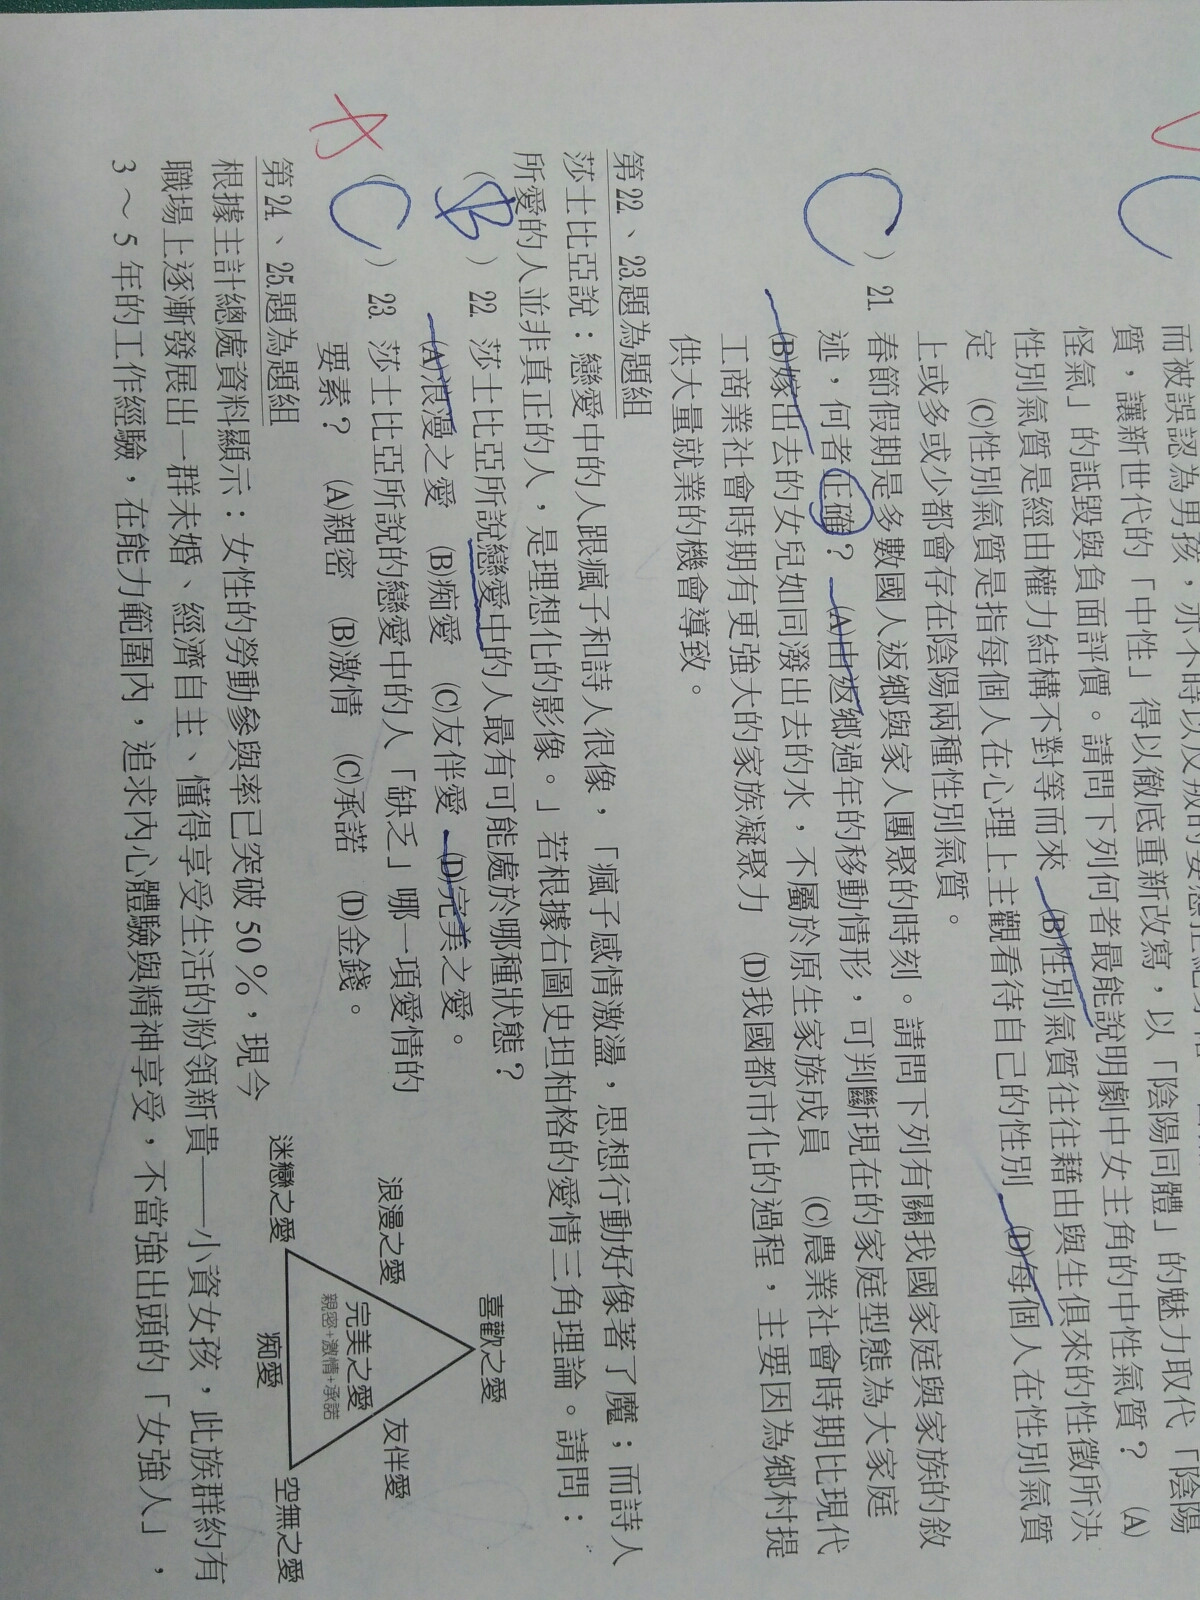 而被誤認為男孩，亦不時以
質，讓新世代的「中性」得以徹底重新改寫，以「陰陽同體」的魅力取代「陰陽
怪氣」的詆毀與負面評價。請問下列何者最能說明劇中女主角的中性氣質？　(A)
性別氣質是經由權力結構不對等而來　(B)性別氣質往往藉由與生俱來的性徵所決
定　(C)性別氣質是指每個人在心理上主觀看待自己的性別　(D)每個人在性別氣質
上或多或少都會存在陰陽兩種性別氣質。
C
( C ) 21. 春節假期是多數國人返鄉與家人團聚的時刻。請問下列有關我國家庭與家族的敘
述，何者正確？　(A)由返鄉過年的移動情形，可判斷現在的家庭型態為大家庭
(B)嫁出去的女兒如同潑出去的水，不屬於原生家族成員　(C)農業社會時期比現代
工商業社會時期有更強大的家族凝聚力　(D)我國都市化的過程，主要因為鄉村提
供大量就業的機會導致。
第22、23.題為題組
莎士比亞說：戀愛中的人跟瘋子和詩人很像，「瘋子感情激盪，思想行動好像著了魔；而詩人
所愛的人並非真正的人，是理想化的影像。」若根據右圖史坦柏格的愛情三角理論。請問：
( B ) 22. 莎士比亞所說戀愛中的人最有可能處於哪種狀態？
(A)浪漫之愛　(B)痴愛　(C)友伴愛　(D)完美之愛。
( C ) 23. 莎士比亞所說的戀愛中的人「缺乏」哪一項愛情的
要素？　(A)親密　(B)激情　(C)承諾　(D)金錢。
喜歡之愛
浪漫之愛
友伴愛
完美之愛
親密+激情+承諾
迷戀之愛
痴愛
空無之愛
第24、25.題為題組
根據主計總處資料顯示：女性的勞動參與率已突破50％，現今
職場上逐漸發展出一群未婚、經濟自主、懂得享受生活的粉領新貴——小資女孩，此族群約有
3～5年的工作經驗，在能力範圍內，追求內心體驗與精神享受，不當強出頭的「女強人」，